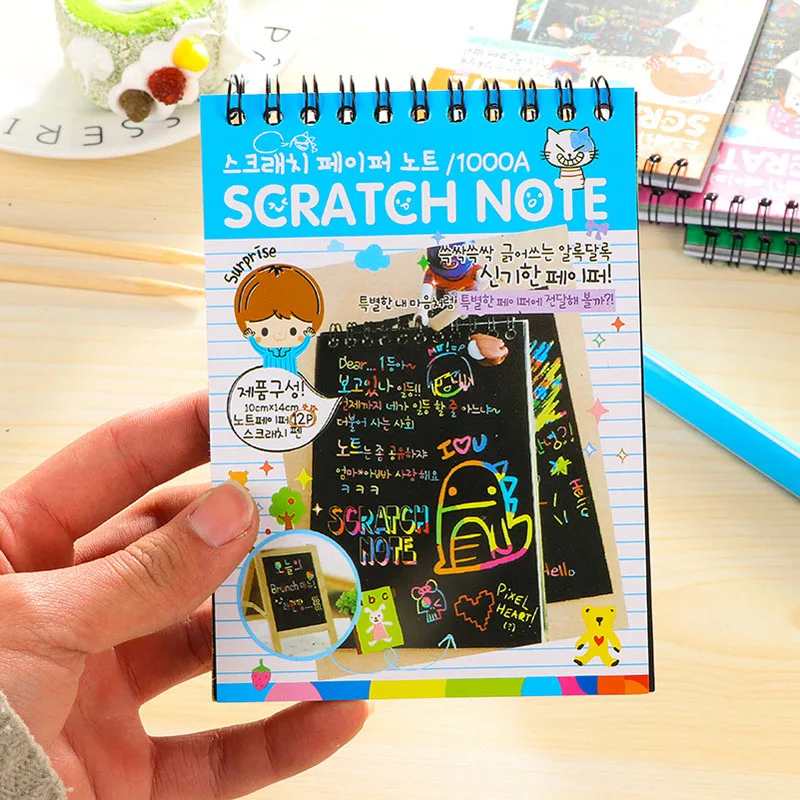 스크래치 페이퍼 노트 /1000A
SCRATCH NOTE
Surprise
쓱싹쓱싹 긁어쓰는 알록달록
신기한 페이퍼!
특별한 내 마음처럼! 특별한 페이퍼에 전달해 볼까?!
제품구성!
10cm×14cm
노트페이퍼 12P
스크래치 펜
Dear... 1등아~
보고있나 일등!!
언제까지 네가 일등 할 줄 아느냐~
더불어 사는 사회
노트는 좀 공유하쟈
엄마*아빠 사랑해요
ㅋㅋㅋ
I U
SCRATCH
NOTE
안녕?!
Hello
Hello
오늘의
Brunch 메뉴!
a b c
PiXEL
HEART!
(?)
SERI
SCRA